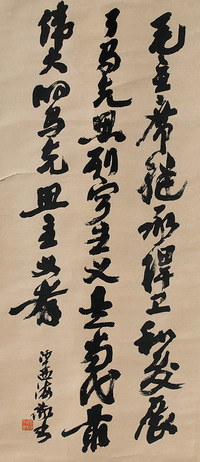 毛主席继承捍卫和发展
了马克思列宁主义是当代最
伟大的马克思主义者
沙孟海敬书